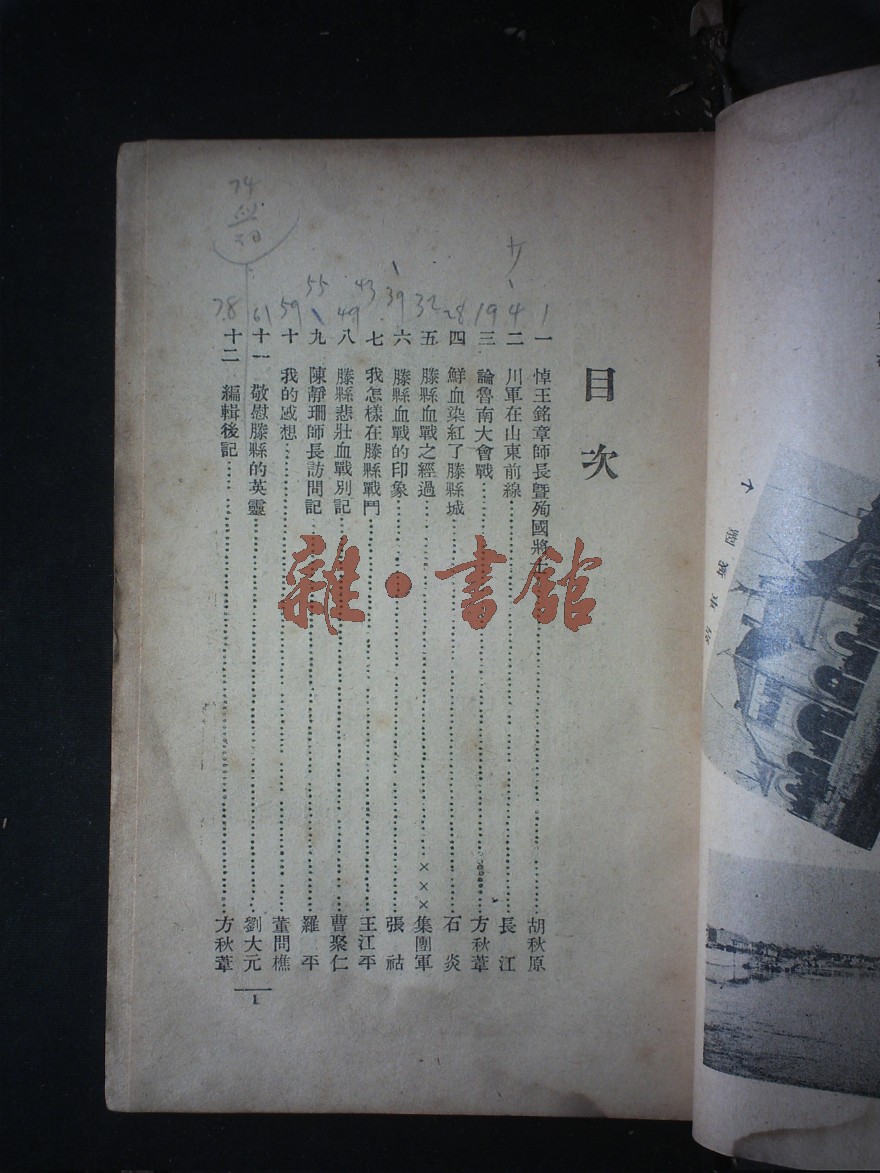 目次
一 悼王銘章師長暨殉國將士 胡秋原
二 川軍在山東前線 長江
三 論魯南大會戰 方秋葦
四 鮮血染紅了滕縣城 石炎
五 滕縣血戰之經過 ×××集團軍
六 滕縣血戰的印象 張祜
七 我怎樣在滕縣戰鬥 王江平
八 滕縣悲壯血戰別記 曹聚仁
九 陳靜珊師長訪問記 羅平
十 我的感想 董問樵
十一 敬慰滕縣的英靈 劉大元
十二 編輯後記 方秋葦
1
1
4
19
28
32
39
43
49
55
59
61
78
74
雜·書館